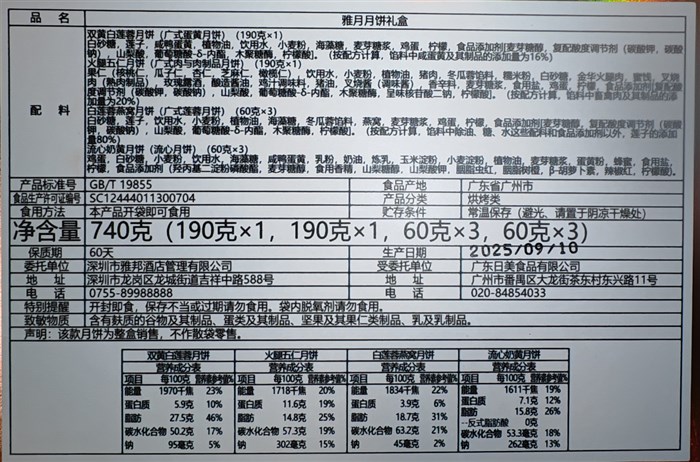 品 名 雅月月饼礼盒
配 料
双黄白莲蓉月饼（广式蛋黄月饼）（190克×1）
白砂糖，莲子，咸鸭蛋黄，植物油，饮用水，小麦粉，海藻糖，麦芽糖浆，鸡蛋，柠檬，食品添加剂[麦芽糖醇，复配酸度调节剂（碳酸钾，碳
酸钠），山梨酸，葡萄糖酸-δ-内酯，木聚糖酶，柠檬酸]。（按配方计算，馅料中咸蛋黄及其制品的添加量为16%）
火腿五仁月饼（广式肉与肉制品月饼）（190克×1）
果仁（核桃仁，瓜子仁，杏仁，芝麻仁，橄榄仁），饮用水，小麦粉，植物油，猪肉，冬瓜蓉馅料，糯米粉，白砂糖，金华火腿肉，蜜饯，叉烧
肉（熟肉制品），玫瑰露酒，酿造酱油，鸡汁调味料，猪油，叉烧酱（调味酱），香辛料，麦芽糖浆，食用盐，鸡蛋，柠檬，食品添加剂[复配酸
度调节剂（碳酸钾，碳酸钠），山梨酸，葡萄糖酸-δ-内酯，木聚糖酶，呈味核苷酸二钠，柠檬酸]。（按配方计算，馅料中畜禽肉及其制品的添
加量为20%）
白莲蓉燕窝月饼（广式莲蓉月饼）（60克×3）
白砂糖，莲子，饮用水，小麦粉，植物油，海藻糖，冬瓜蓉馅料，燕窝，麦芽糖浆，鸡蛋，柠檬，食品添加剂[麦芽糖醇，复配酸度调节剂（碳酸
钾，碳酸钠），山梨酸，葡萄糖酸-δ-内酯，木聚糖酶，柠檬酸]。（按配方计算，馅料中除油、糖、水这些配料和食品添加剂以外，莲子的添加
量80%）
流心奶黄月饼（流心月饼）（60克×3）
鸡蛋，白砂糖，小麦粉，饮用水，海藻糖，咸鸭蛋黄，乳粉，奶油，炼乳，玉米淀粉，小麦淀粉，植物油，麦芽糖浆，蛋黄粉，蜂蜜，食用盐，
柠檬，食品添加剂（羟丙基二淀粉磷酸酯，麦芽糖醇，食用香精，山梨糖醇，山梨酸钾，胭脂虫红，胭脂树橙，β-胡萝卜素，辣椒红，柠檬酸）。
产品标准号 GB/T 19855 食品产地 广东省广州市
食品生产许可证编号 SC12444011300704 产品分类 烘烤类
食用方法 本产品开袋即可食用 贮存条件 常温保存（避光、请置于阴凉干燥处）
净含量 740克（190克×1，190克×1，60克×3，60克×3）
保质期 60天 生产日期 2025/09/10
委托单位 深圳市雅邦酒店管理有限公司 受委托单位 广东日美食品有限公司
地 址 深圳市龙岗区龙城街道吉祥中路588号 地 址 广州市番禺区大龙街茶东村东兴路11号
电 话 0755-89988888 电 话 020-84854033
特别提醒 开封即食，保存不当或过期请勿食用。袋内脱氧剂请勿食用。
致敏物质 含有麸质的谷物及其制品、蛋类及其制品、坚果及其果仁类制品、乳及乳制品。
声明：该款月饼为整盒销售，不作散袋零售。
双黄白莲蓉月饼 火腿五仁月饼 白莲蓉燕窝月饼 流心奶黄月饼
营养成分表 营养成分表 营养成分表 营养成分表
项目 每100克 营养素参考值% 项目 每100克 营养素参考值% 项目 每100克 营养素参考值% 项目 每100克 营养素参考值%
能量 1970千焦 23% 能量 1718千焦 20% 能量 1834千焦 22% 能量 1611千焦 19%
蛋白质 5.9克 10% 蛋白质 11.6克 19% 蛋白质 3.9克 6% 蛋白质 7.1克 12%
脂肪 27.5克 46% 脂肪 14.8克 25% 脂肪 18.7克 31% 脂肪 15.8克 26%
--反式脂肪酸 0克
碳水化合物 50.2克 17% 碳水化合物 57.3克 19% 碳水化合物 63.2克 21% 碳水化合物 53.3克 18%
钠 95毫克 5% 钠 302毫克 15% 钠 45毫克 2% 钠 262毫克 13%